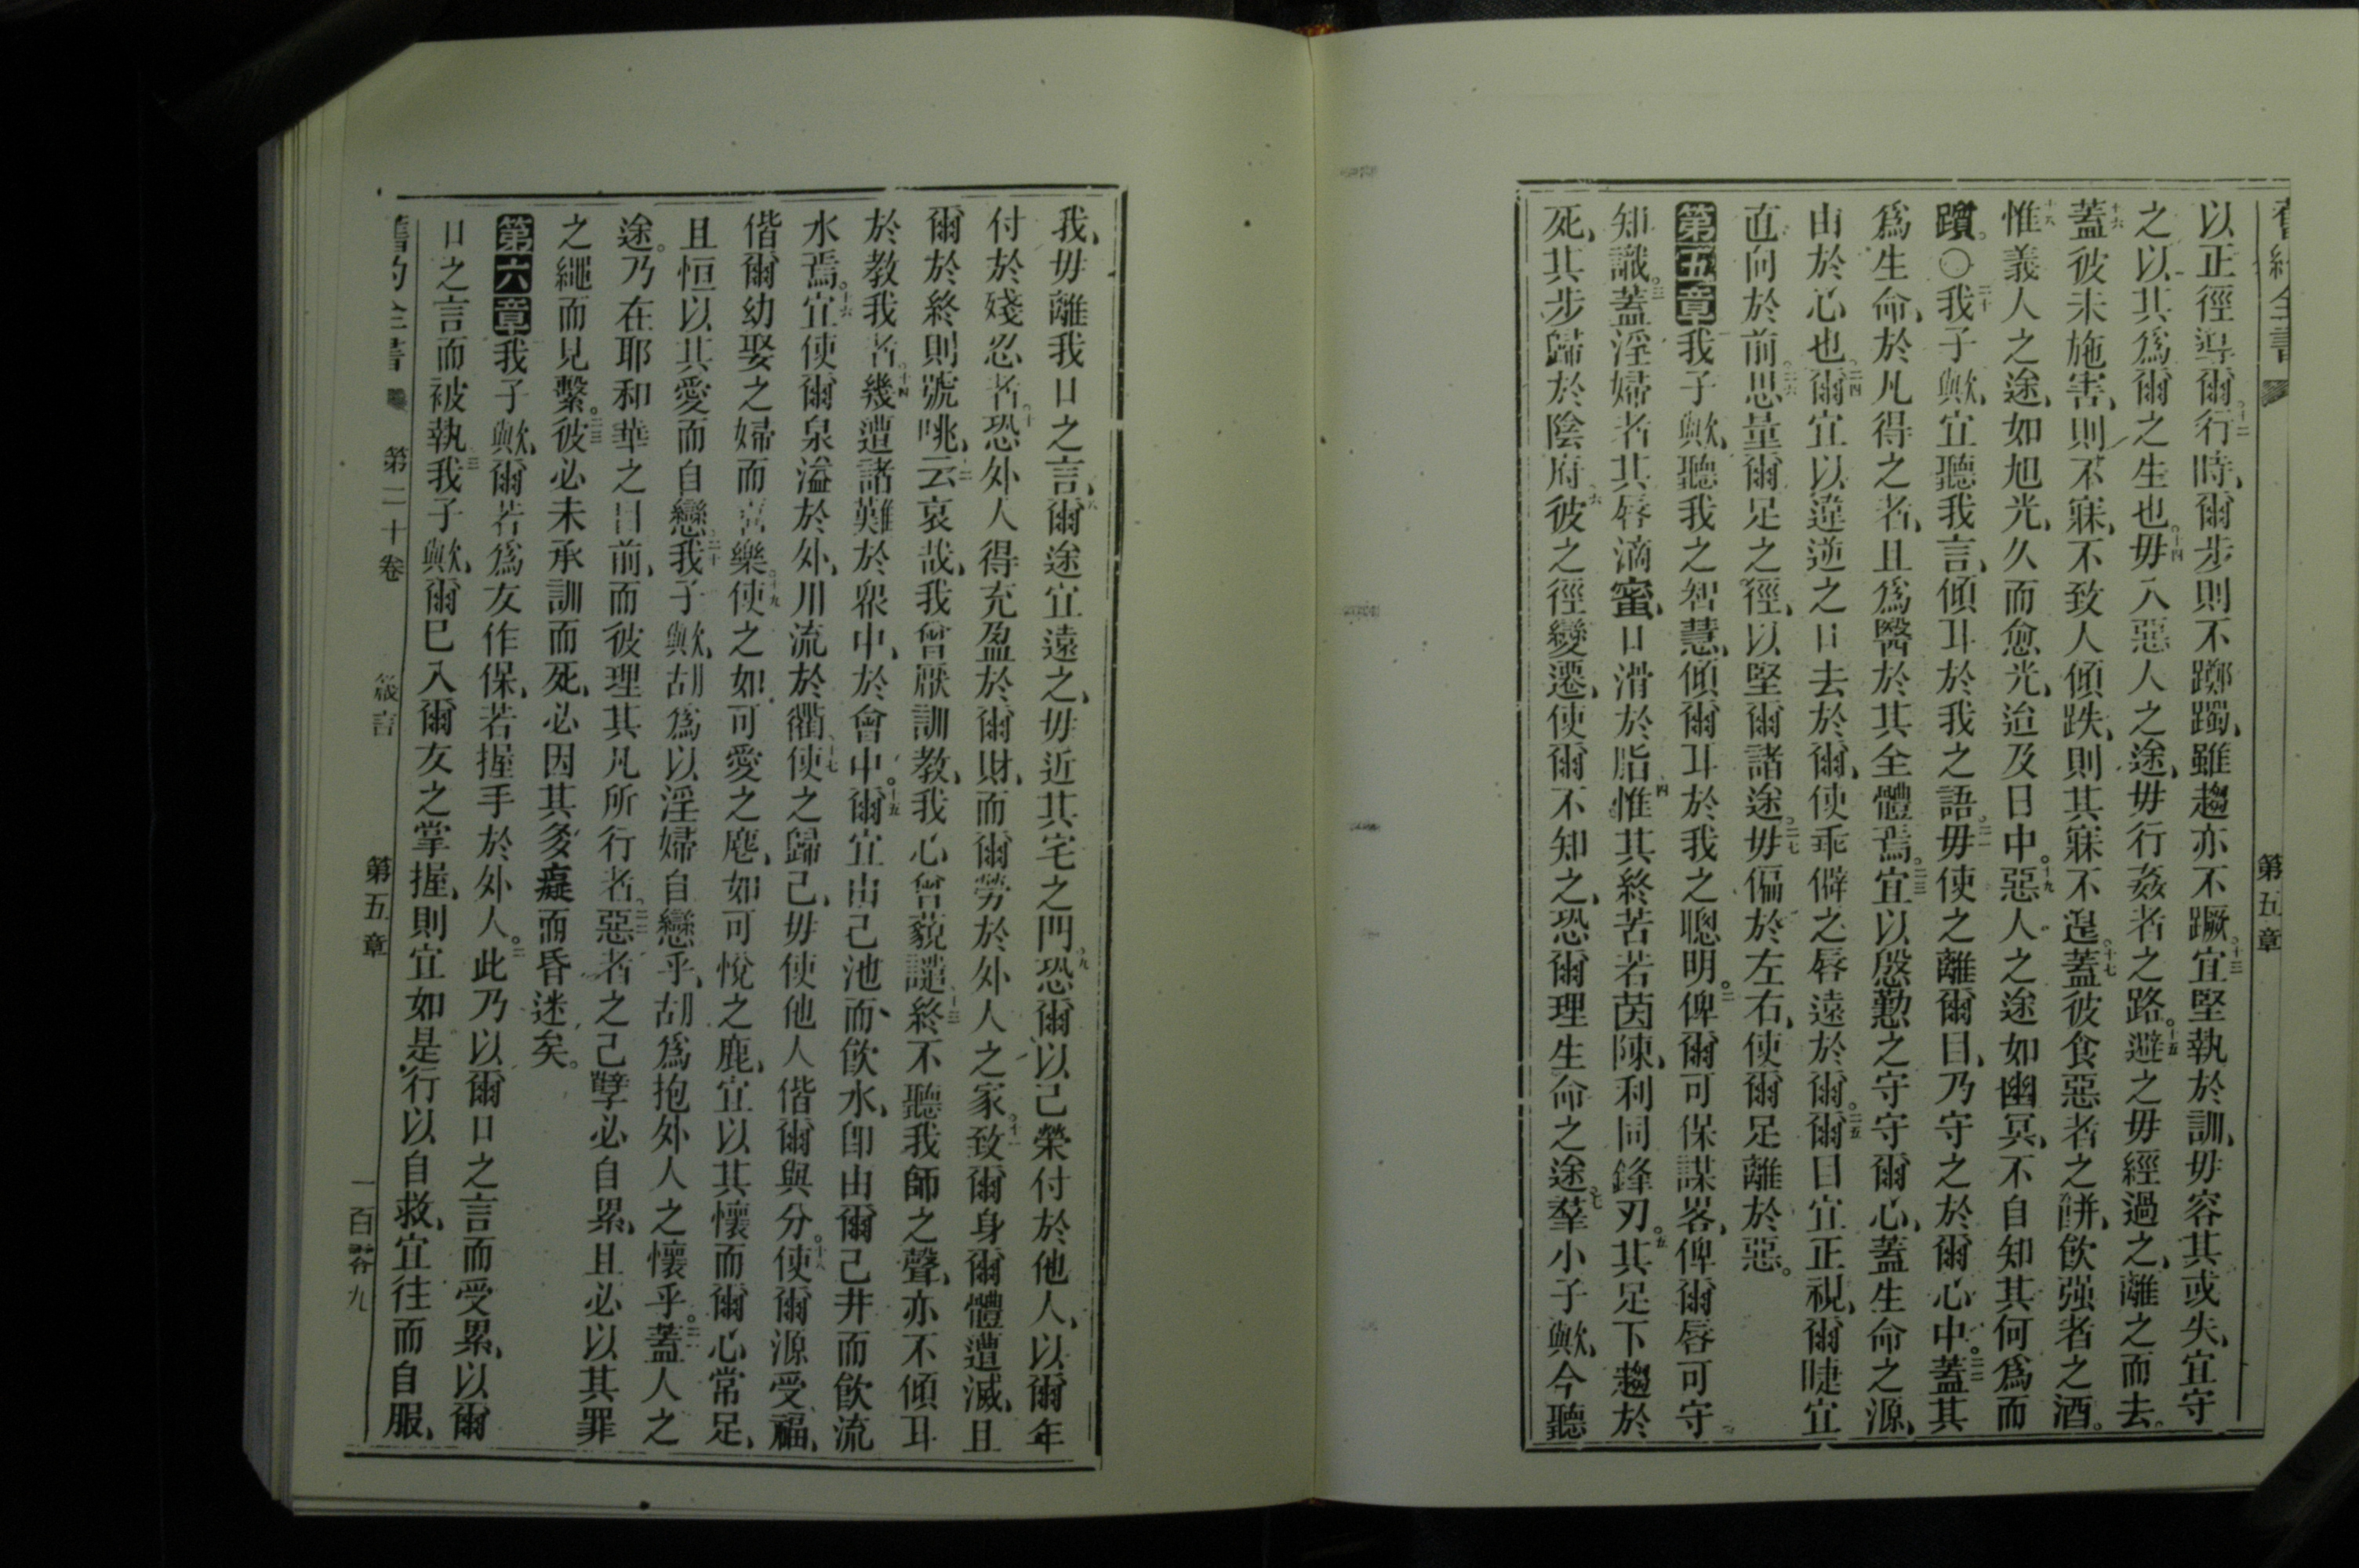 舊約全書
第五章
以正徑導爾十二行時、爾步則不躑躅、雖趨亦不蹶。十三宜堅執於訓、毋容其或失、宜守
之以其爲爾之生也。十四毋入惡人之途、毋行姦者之路。十五避之毋經過之、離之而去。
十六蓋彼未施害、則不寐、不致人傾跌、則其寐不遑。十七蓋彼食惡者之餅、飮强者之酒。
十八惟義人之途、如旭光、久而愈光、迨及日中。十九惡人之途如幽冥、不自知其何爲而
躓。〇二十我子歟、宜聽我言、傾耳於我之語。二一毋使之離爾目、乃守之於爾心中。二二蓋其
爲生命、於凡得之者、且爲醫於其全體焉。二三宜以慇懃之守守爾心、蓋生命之源、
由於心也。二四爾宜以違逆之口去於爾、使乖僻之唇遠於爾。二五爾目宜正視、爾睫宜
直向於前。二六思量爾足之徑、以堅爾諸途。二七毋偏於左右、使爾足離於惡。
第五章一我子歟、聽我之智慧、傾爾耳於我之聰明。二俾爾可保謀畧、俾爾唇可守
知識。三蓋淫婦者其唇滴蜜、口滑於脂、四惟其終苦若茵陳、利同鋒刃。五其足下趨於
死、其步歸於陰府、六彼之徑變遷、使爾不知之、恐爾理生命之途。七羣小子歟、今聽
我、毋離我口之言、八爾途宜遠之、毋近其宅之門、九恐爾以己榮付於他人、以爾年
付於殘忍者。十恐外人得充盈於爾財、而爾勞於外人之家。十一致爾身爾體遭滅、且
爾於終則號咷、十二云哀哉、我曾厭訓教、我心曾藐譴、十三終不聽我師之聲、亦不傾耳
於教我者。十四幾遭諸難於衆中、於會中。十五爾宜由己池而飮水、卽由爾己井而飮流
水焉。十六宜使爾泉溢於外、川流於衢、十七使之歸己、毋使他人偕爾與分。十八使爾源受福、
偕爾幼娶之婦而喜樂。十九使之如可愛之麀、如可悅之鹿、宜以其懷而爾心常足、
且恒以其愛而自戀。二十我子歟、胡爲以淫婦自戀乎、胡爲抱外人之懷乎。二一蓋人之
途。乃在耶和華之目前、而彼理其凡所行者。二二惡者之己孽必自累、且必以其罪
之繩而見繫。二三彼必未承訓而死、必因其多癡而昏迷矣。
第六章一我子歟、爾若爲友作保、若握手於外人。二此乃以爾口之言而受累、以爾
口之言而被執。三我子歟、爾已入爾友之掌握、則宜如是行以自救、宜往而自服、
舊約全書 第二十卷 箴言 第五章 一百零九